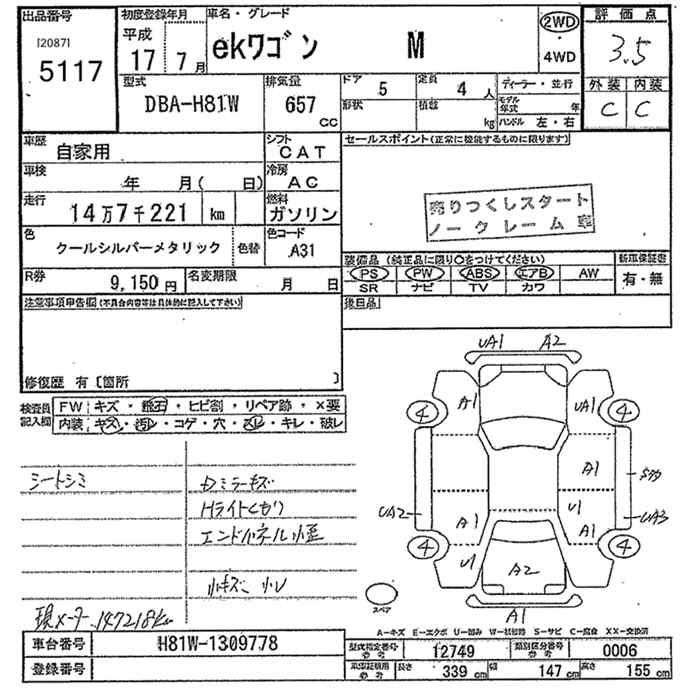 出品番号
[2087]
5117
初度登録年月
平成
17 7月
車名・グレード
ekワゴン M
2WD
・
4WD
評価点
3.5
外装 内装
C C
型式
DBA-H81W
排気量
657
CC
ドア 5
形状
定員 4 人
積載 kg
ディーラー・並行
モデル年式 年
ハンドル 左・右
車歴
自家用
シフト
CAT
セールスポイント(正常に機能するものに限ります)
売りつくしスタート
ノークレーム
車検
年 月( 日)
冷房
AC
走行
14万7千221 km
燃料
ガソリン
色
クールシルバーメタリック
色替
色コード
A31
装備品(純正品に限り○をつけてください)
PS PW ABS エアB AW
SR ナビ TV カワ
新車保証書
有・無
R券
9,150円
名変期限
月 日
後日品
注意事項申告欄(不具合内容等は具体的に記入して下さい)
修復歴 有 [箇所 ]
検査員
記入欄
FW キズ・飛石・ヒビ割・リペア跡・×要
内装 キズ・汚レ・コゲ・穴・スレ・キレ・破レ
シートシミ
Dミラーキズ
Hライトくもり
エンドパネル
小キズ 小凹
現メーター 147218km
UA1 A2
A1 UA1
4 4
A1 S7A
UA2 A1 U1 A1 UA3
4 4
U1 A2
A1
スペア
A-キズ E-エクボ U-凹み W-波 S-サビ C-腐食 XX-交換済
車台番号
H81W-1309778
登録番号
型式指定番号
参考
12749
類別区分番号
参考
0006
車検証明用
参考
長さ 339 cm 幅 147 cm 高さ 155 cm